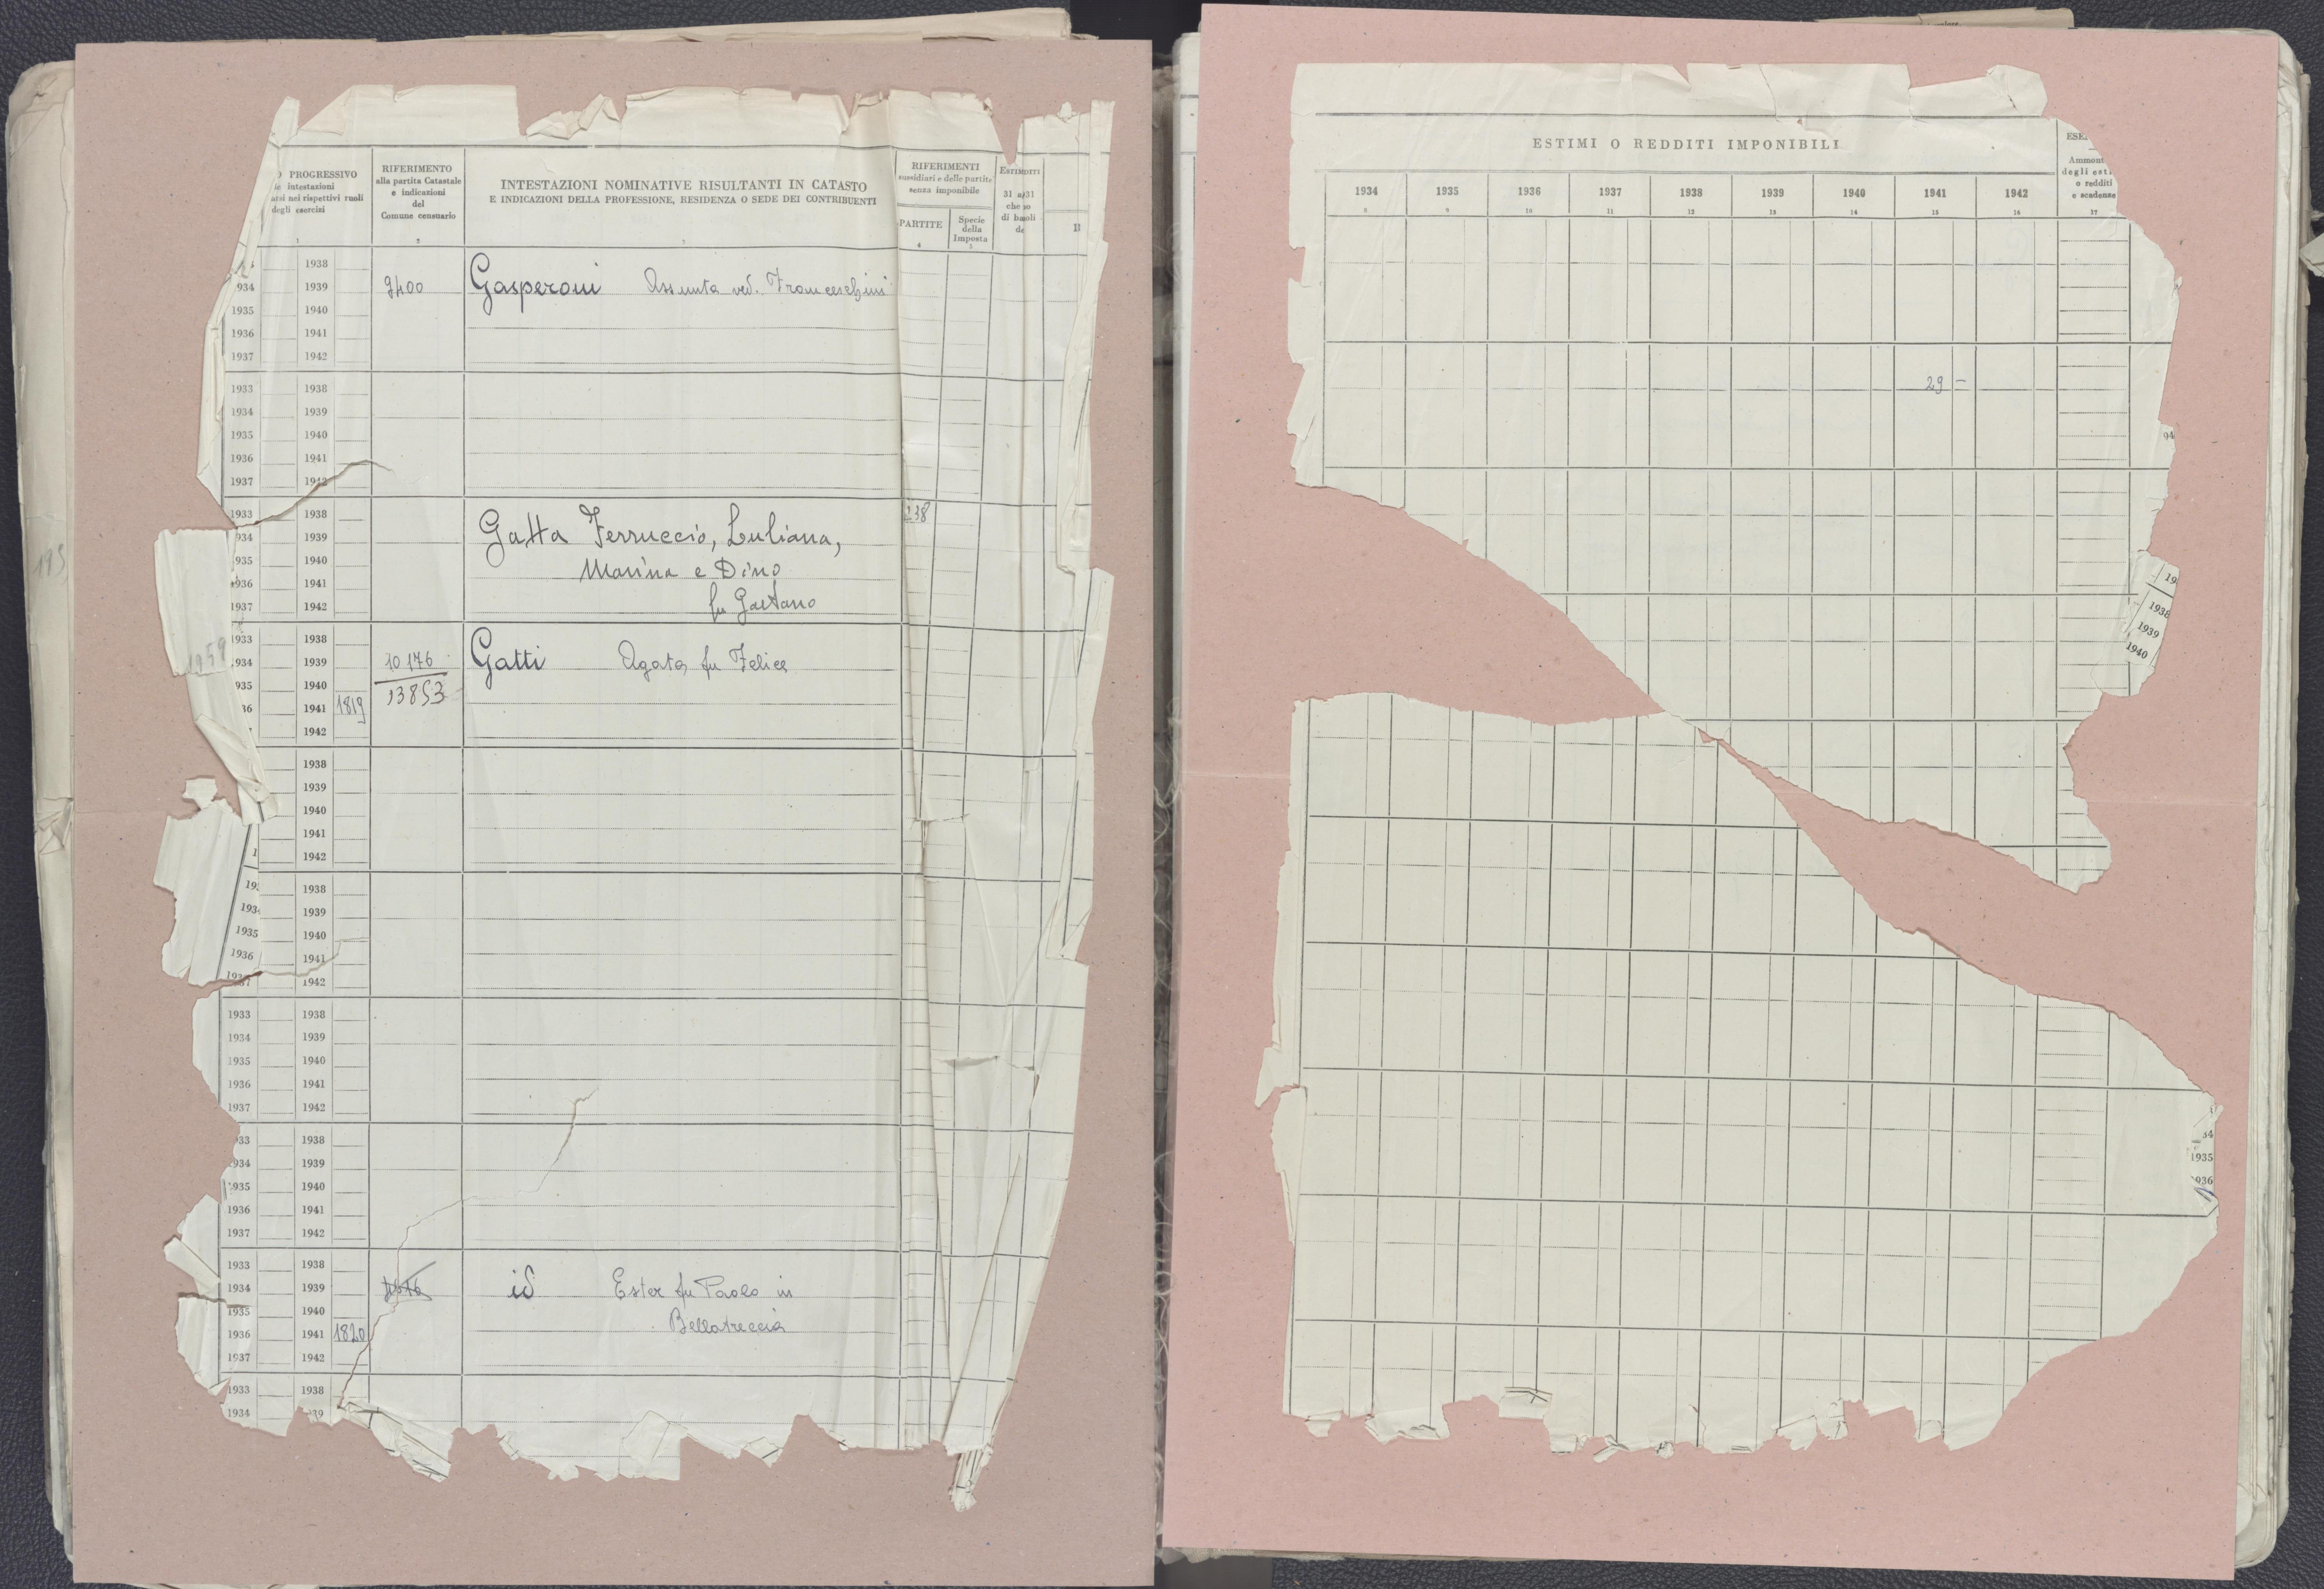 O PROGRESSIVO
intestazioni
arsi nei rispettivi ruoli
degli esercizi
1
RIFERIMENTO
alla partita Catastale
e indicazioni
del
Comune censuario
2
INTESTAZIONI NOMINATIVE RISULTANTI IN CATASTO
E INDICAZIONI DELLA PROFESSIONE, RESIDENZA O SEDE DEI CONTRIBUENTI
3
RIFERIMENTI
sussidiari e delle partite
senza imponibile
PARTITE
4
Specie
della
Imposta
5
1938
934 1939 9400 Gasperoni Assunta ved. Franceschini
1935 1940
1936 1941
1937 1942
1933 1938
1934 1939
1935 1940
1936 1941
1937 1942
1933 1938 238
34 1939 Gatta Ferruccio, Luliana,
935 1940
936 1941 Marina e Dino
1937 1942 fu Gaetano
1933 1938
1934 1939 10176 Gatti Agata fu Felice
935 1940 13853
36 1941 1819
1942
1938
1939
1940
1941
1942
1938
1939
1935 1940
1936 1941
1937 1942
1933 1938
1934 1939
1935 1940
1936 1941
1937 1942
33 1938
934 1939
1935 1940
1936 1941
1937 1942
1933 1938
1934 1939 id Ester fu Paolo in
1935 1940
1936 1941 1820 Bellatreccia
1937 1942
1933 1938
1934 39
ESTIMI O REDDITI IMPONIBILI
1934 1935 1936 1937 1938 1939 1940 1941 1942
8 9 10 11 12 13 14 15 16 17
Ammont
degli esti
o redditi
e scadenze
29 –
94
19
1938
1939
1940
34
1935
936